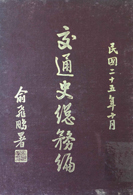 民國二十五年十月
交通史總務編
俞飛鵬署